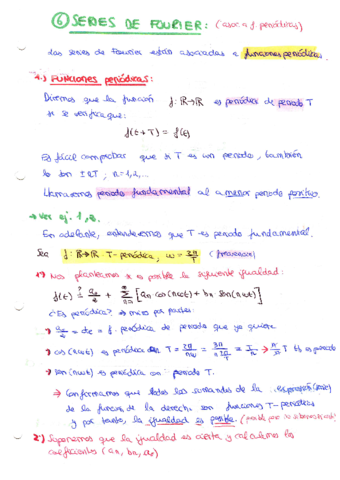 ⑥ SERIES DE FOURIER: (asoc a f periódicas)
Las series de Fourier están asociadas a funciones periódicas.
1.) FUNCIONES PERIÓDICAS:
Diremos que la función f: ℝ→ℝ es periódica de periodo T
si se verifica que:
f(t+T) = f(t)
Es fácil comprobar que si T es un periodo, también
lo son ±nT; n=1,2,...
Llamaremos periodo fundamental al menor periodo positivo.
→ Ver ej. 1, 2.
En adelante, entenderemos que T es periodo fundamental.
Sea f: ℝ→ℝ T-periódica, ω = 2π/T (frecuencia)
1º) Nos planteamos si es posible la siguiente igualdad:
f(t) ?= a₀/2 + Σ [aₙ cos(nωt) + bₙ sen(nωt)]
¿Es periódica? → miro por partes:
→ a₀/2 = cte = f. periódica de periodo que yo quiera.
→ cos(nωt) es periódica con T = 2π/nω = 2π/(n 2π/T) = T/n → T es periodo
→ sen(nωt) es periódica con periodo T.
→ Confirmamos que todos los sumandos de la expresión
de la función de la derecha son funciones T-periódicas
y por tanto, la igualdad es posible. (posible pero no sabemos si es)
2º) Suponemos que la igualdad es cierta y calculamos los
coeficientes (aₙ, bₙ, a₀)